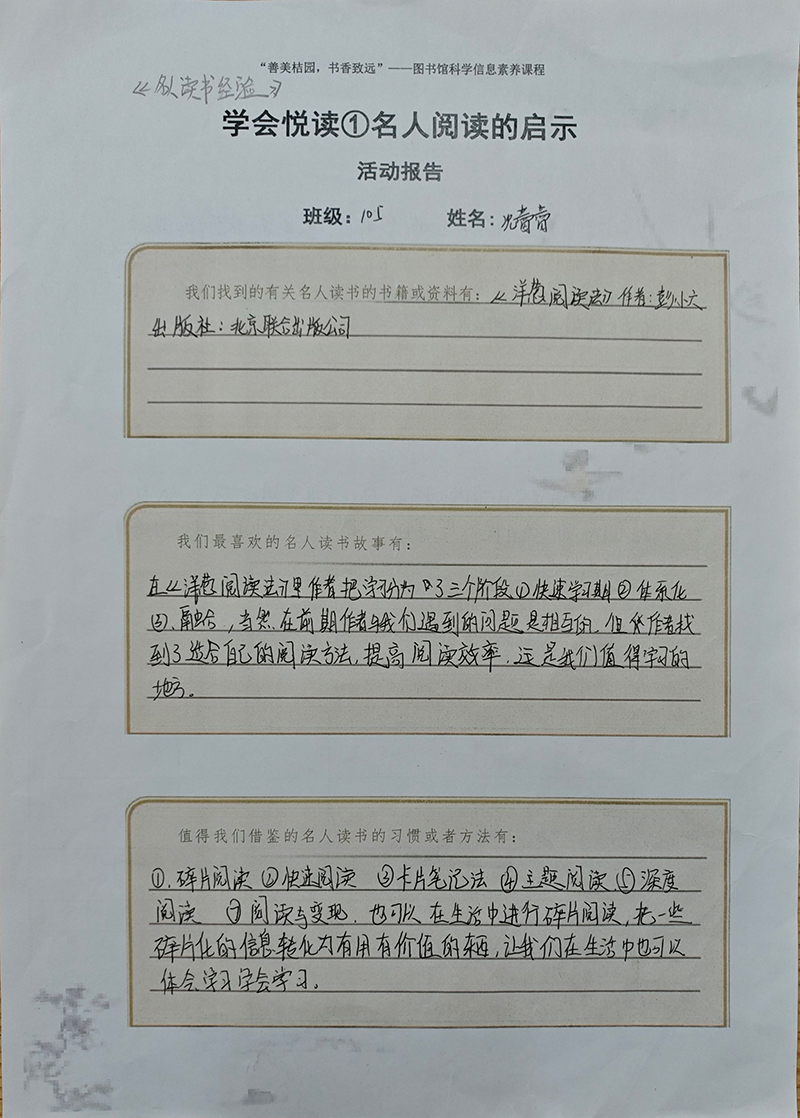 “善美桔园，书香致远”——图书馆科学信息素养课程
《名人读书经验》
学会悦读①名人阅读的启示
活动报告
班级：105 姓名：
我们找到的有关名人读书的书籍或资料有：《洋葱阅读法》作者：彭小六
出版社：北京联合出版公司
我们最喜欢的名人读书故事有：
在《洋葱阅读法》里作者把学习分为了三个阶段①快速学习期②体系化
③、融合，当然在前期作者与我们遇到的问题是相互的，但作者找
到了适合自己的阅读方法，提高阅读效率，这是我们值得学习的
地方。
值得我们借鉴的名人读书的习惯或者方法有：
①、碎片阅读 ②快速阅读 ③卡片笔记法 ④主题阅读 ⑤深度
阅读 ⑦阅读与变现．也可以在生活中进行碎片阅读，把一些
碎片化的信息转化为有用有价值的东西，让我们在生活中也可以
体会学习学会学习。